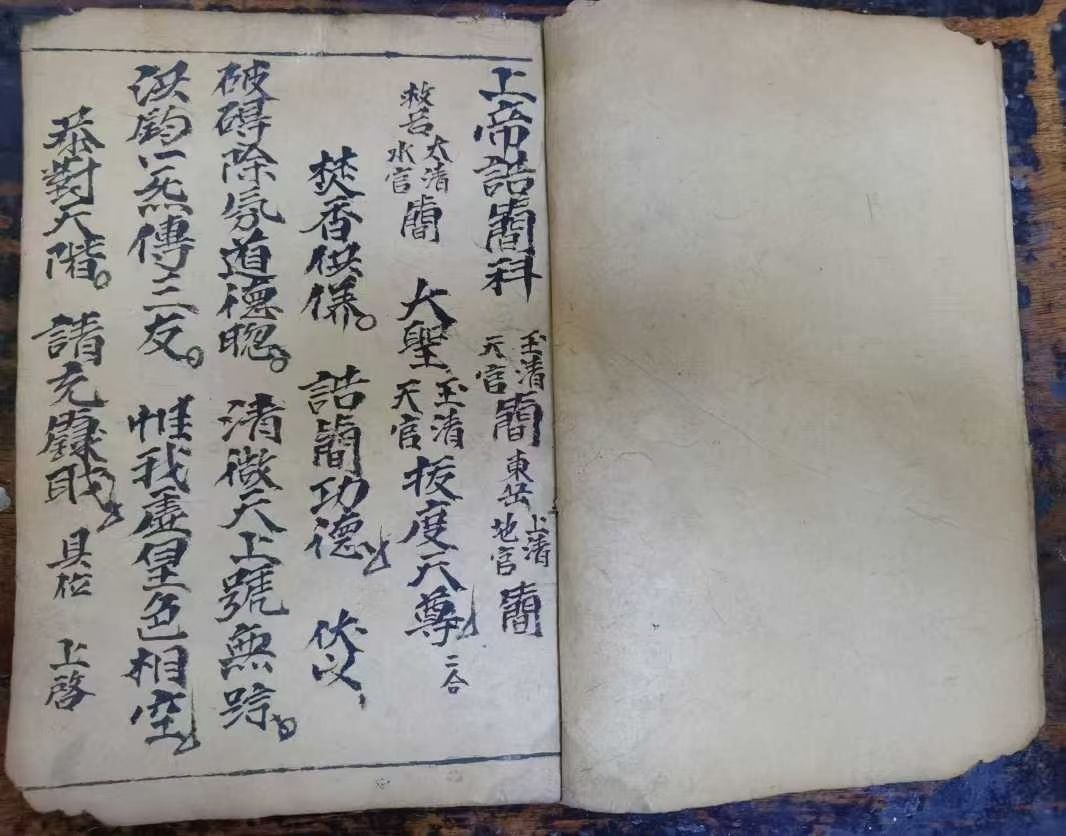 上帝誥簡科 玉清天官簡 東岳上清地官簡
救苦太清水官簡 大聖玉清天官拔度天尊 二合
焚香供養。 誥簡功德 伏以
破碍除氛道德聰。 清微天上號無踪。
洪鈞一炁傳三友。 惟我虛皇色相空
恭對天階。 請充籙職 具位 上啓